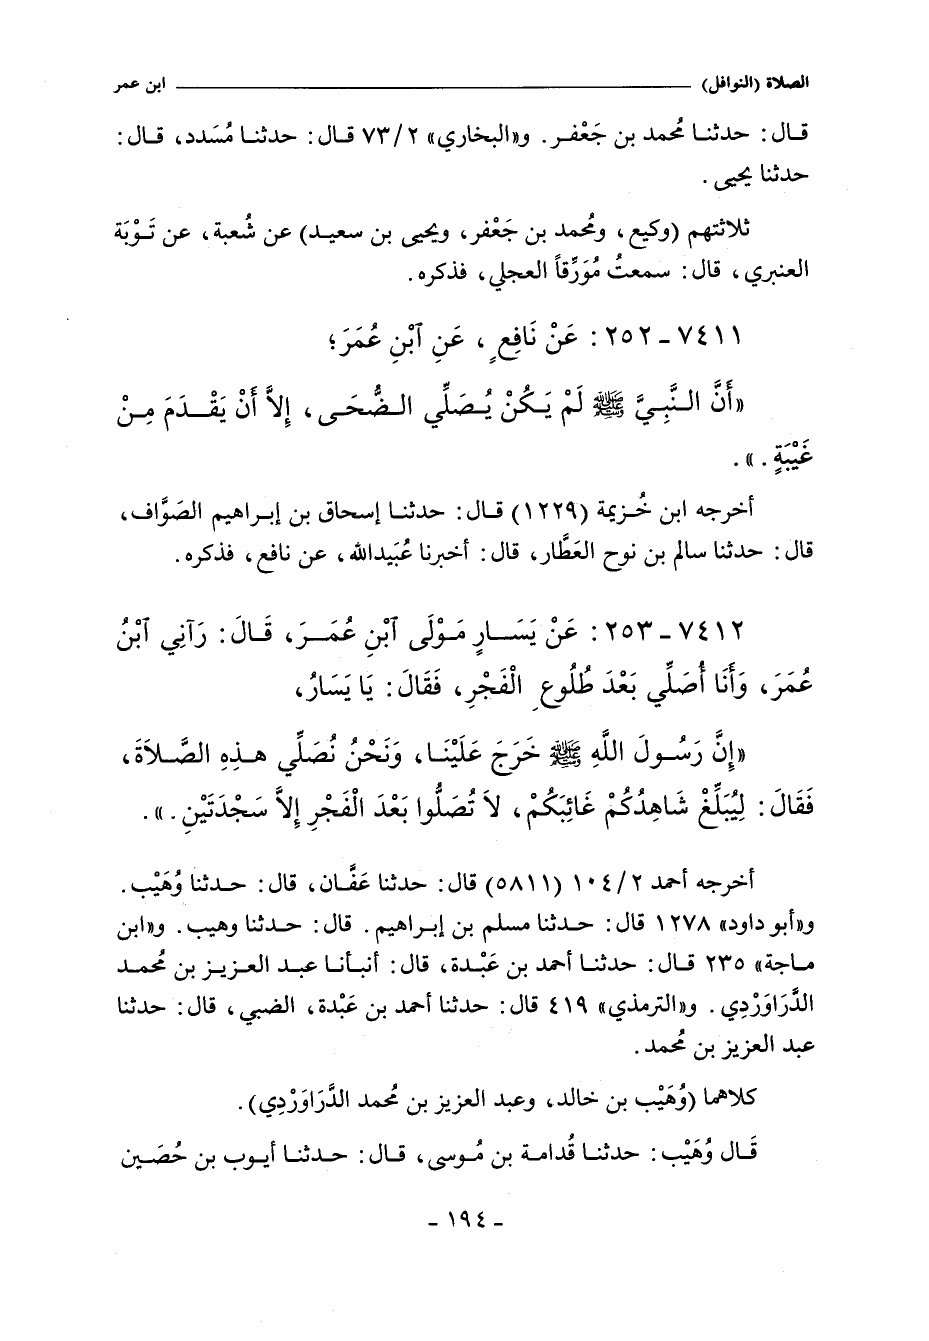 الصلاة (النوافل) ابن عمر
قال: حدثنا مُحمد بن جَعْفر. و«البخاري» ٧٣/٢ قال: حدثنا مُسَدد، قال:
حدثنا يحيى.
ثلاثتهم (وكيع، ومُحمد بن جَعْفر، ويحيى بن سعيد) عن شُعبة، عن تَوْبَة
العنبري، قال: سمعتُ مُوَرِّقاً العجلي، فذكره.
٧٤١١ - ٢٥٢: عَنْ نَافِعٍ، عَنِ ٱبْنِ عُمَرَ؛
«أَنَّ النَّبِيَّ ﷺ لَمْ يَكُنْ يُصَلِّي الضُّحَى، إِلاَّ أَنْ يَقْدَمَ مِنْ
غَيْبَةٍ.».
أخرجه ابن خُزيمة (١٢٢٩) قال: حدثنا إسحاق بن إبراهيم الصَوَّاف،
قال: حدثنا سالم بن نوح العَطَّار، قال: أخبرنا عُبَيدالله، عن نافع، فذكره.
٧٤١٢ - ٢٥٣: عَنْ يَسَارٍ مَوْلَى ٱبْنِ عُمَرَ، قَالَ: رَآنِي ٱبْنُ
عُمَرَ، وَأَنَا أُصَلِّي بَعْدَ طُلُوعِ الْفَجْرِ، فَقَالَ: يَا يَسَارُ،
«إِنَّ رَسُولَ اللَّهِ ﷺ خَرَجَ عَلَيْنَا، وَنَحْنُ نُصَلِّي هذِهِ الصَّلاَةَ،
فَقَالَ: لِيُبَلِّغْ شَاهِدُكُمْ غَائِبَكُمْ، لاَ تُصَلُّوا بَعْدَ الْفَجْرِ إِلاَّ سَجْدَتَيْنِ.».
أخرجه أحمد ١٠٤/٢ (٥٨١١) قال: حدثنا عَفَّان، قال: حدثنا وُهَيْب.
و«أبو داود» ١٢٧٨ قال: حدثنا مسلم بن إبراهيم. قال: حدثنا وهيب. و«ابن
ماجة» ٢٣٥ قال: حدثنا أحمد بن عَبْدة، قال: أنبأنا عبد العزيز بن مُحمد
الدَّرَاوَرْدِي. و«الترمذي» ٤١٩ قال: حدثنا أحمد بن عَبْدة، الضبي، قال: حدثنا
عبد العزيز بن مُحمد.
كلاهما (وُهَيْب بن خالد، وعبد العزيز بن مُحمد الدَّرَاوَرْدِي).
قَال وُهَيْب: حدثنا قُدامة بن مُوسى، قال: حدثنا أيوب بن حُصَين
- ١٩٤ -